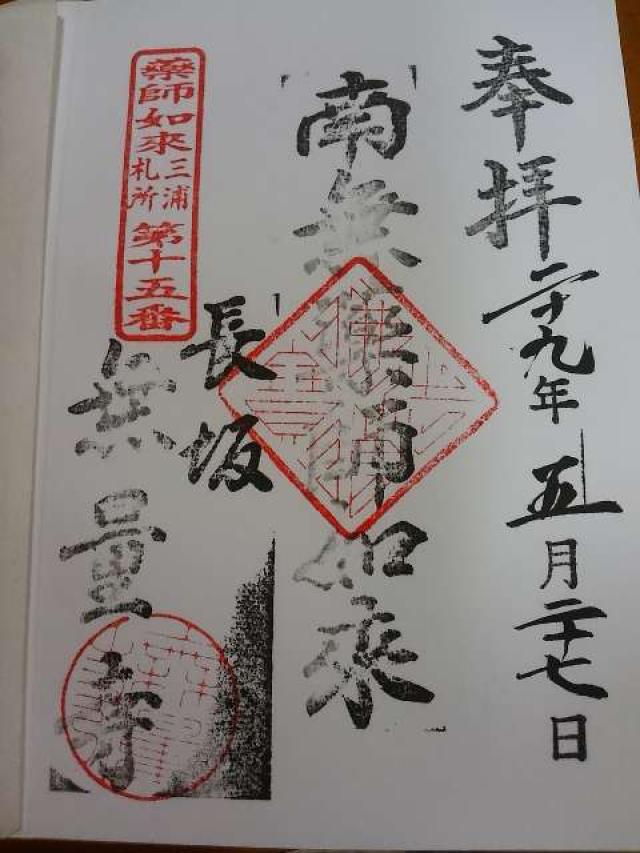 奉拝
二十九年五月二十七日
南無藥師如來
長坂
藥師如來三浦札所第十五番
無量寺